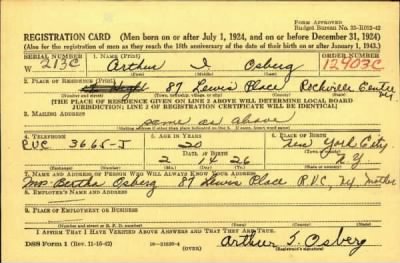 FORM APPROVED
Budget Bureau No. 33-R012-42
REGISTRATION CARD (Men born on or after July 1, 1924, and on or before December 31, 1924)
(Also for the registration of men as they reach the 18th anniversary of the date of their birth on or after January 1, 1943.)
SERIAL NUMBER 1. NAME (Print) ORDER NUMBER
W 213C Arthur I Osberg 12403C
(First) (Middle) (Last)
2. PLACE OF RESIDENCE (Print)
87 Lewis Place Rockville Centre N.Y.
(Number and street) (Town, township, village, or city) (County) (State)
[THE PLACE OF RESIDENCE GIVEN ON LINE 2 ABOVE WILL DETERMINE LOCAL BOARD
JURISDICTION; LINE 2 OF REGISTRATION CERTIFICATE WILL BE IDENTICAL]
3. MAILING ADDRESS
same as above
[Mailing address if other than place indicated on line 2. If same, insert word same]
4. TELEPHONE 5. AGE IN YEARS 6. PLACE OF BIRTH
RVC 3665-J 20 New York City
DATE OF BIRTH (Town or county)
2 14 26 N.Y.
(Exchange) (Number) (Mo.) (Day) (Yr.) (State or country)
7. NAME AND ADDRESS OF PERSON WHO WILL ALWAYS KNOW YOUR ADDRESS
Mrs Bertha Osberg 87 Lewis Place RVC, NY. mother
8. EMPLOYER'S NAME AND ADDRESS
9. PLACE OF EMPLOYMENT OR BUSINESS
(Number and street or R. F. D. number) (Town) (County) (State)
I AFFIRM THAT I HAVE VERIFIED ABOVE ANSWERS AND THAT THEY ARE TRUE.
DSS Form 1 (Rev. 11-16-42) (OVER) Arthur I. Osberg